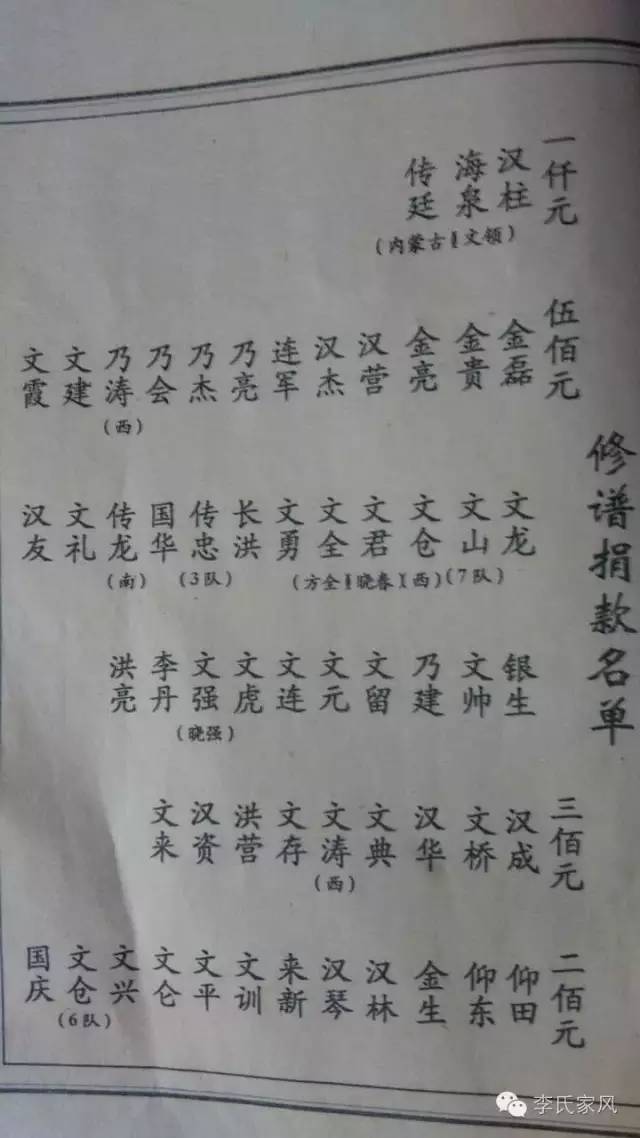 修谱捐款名单
一仟元
汉柱
海泉
传廷
(内蒙古 文领)
伍佰元
金磊
金贵
金亮
汉营
汉杰
连军
乃亮
乃杰
乃会
乃涛
(西)
文建
文霞
文龙
文山
(7队)
文仓
(西)
文君
(晓春)
文全
(方全)
文勇
长洪
传忠
(3队)
国华
传龙
(南)
文礼
汉友
银生
文帅
乃建
文留
文元
文连
文虎
文强
(晓强)
李丹
洪亮
三佰元
汉成
文桥
汉华
文典
文涛
(西)
文存
洪营
汉资
文来
二佰元
仰田
仰东
金生
汉林
汉琴
来新
文训
文平
文仑
文兴
文仓
(6队)
国庆
李氏家风